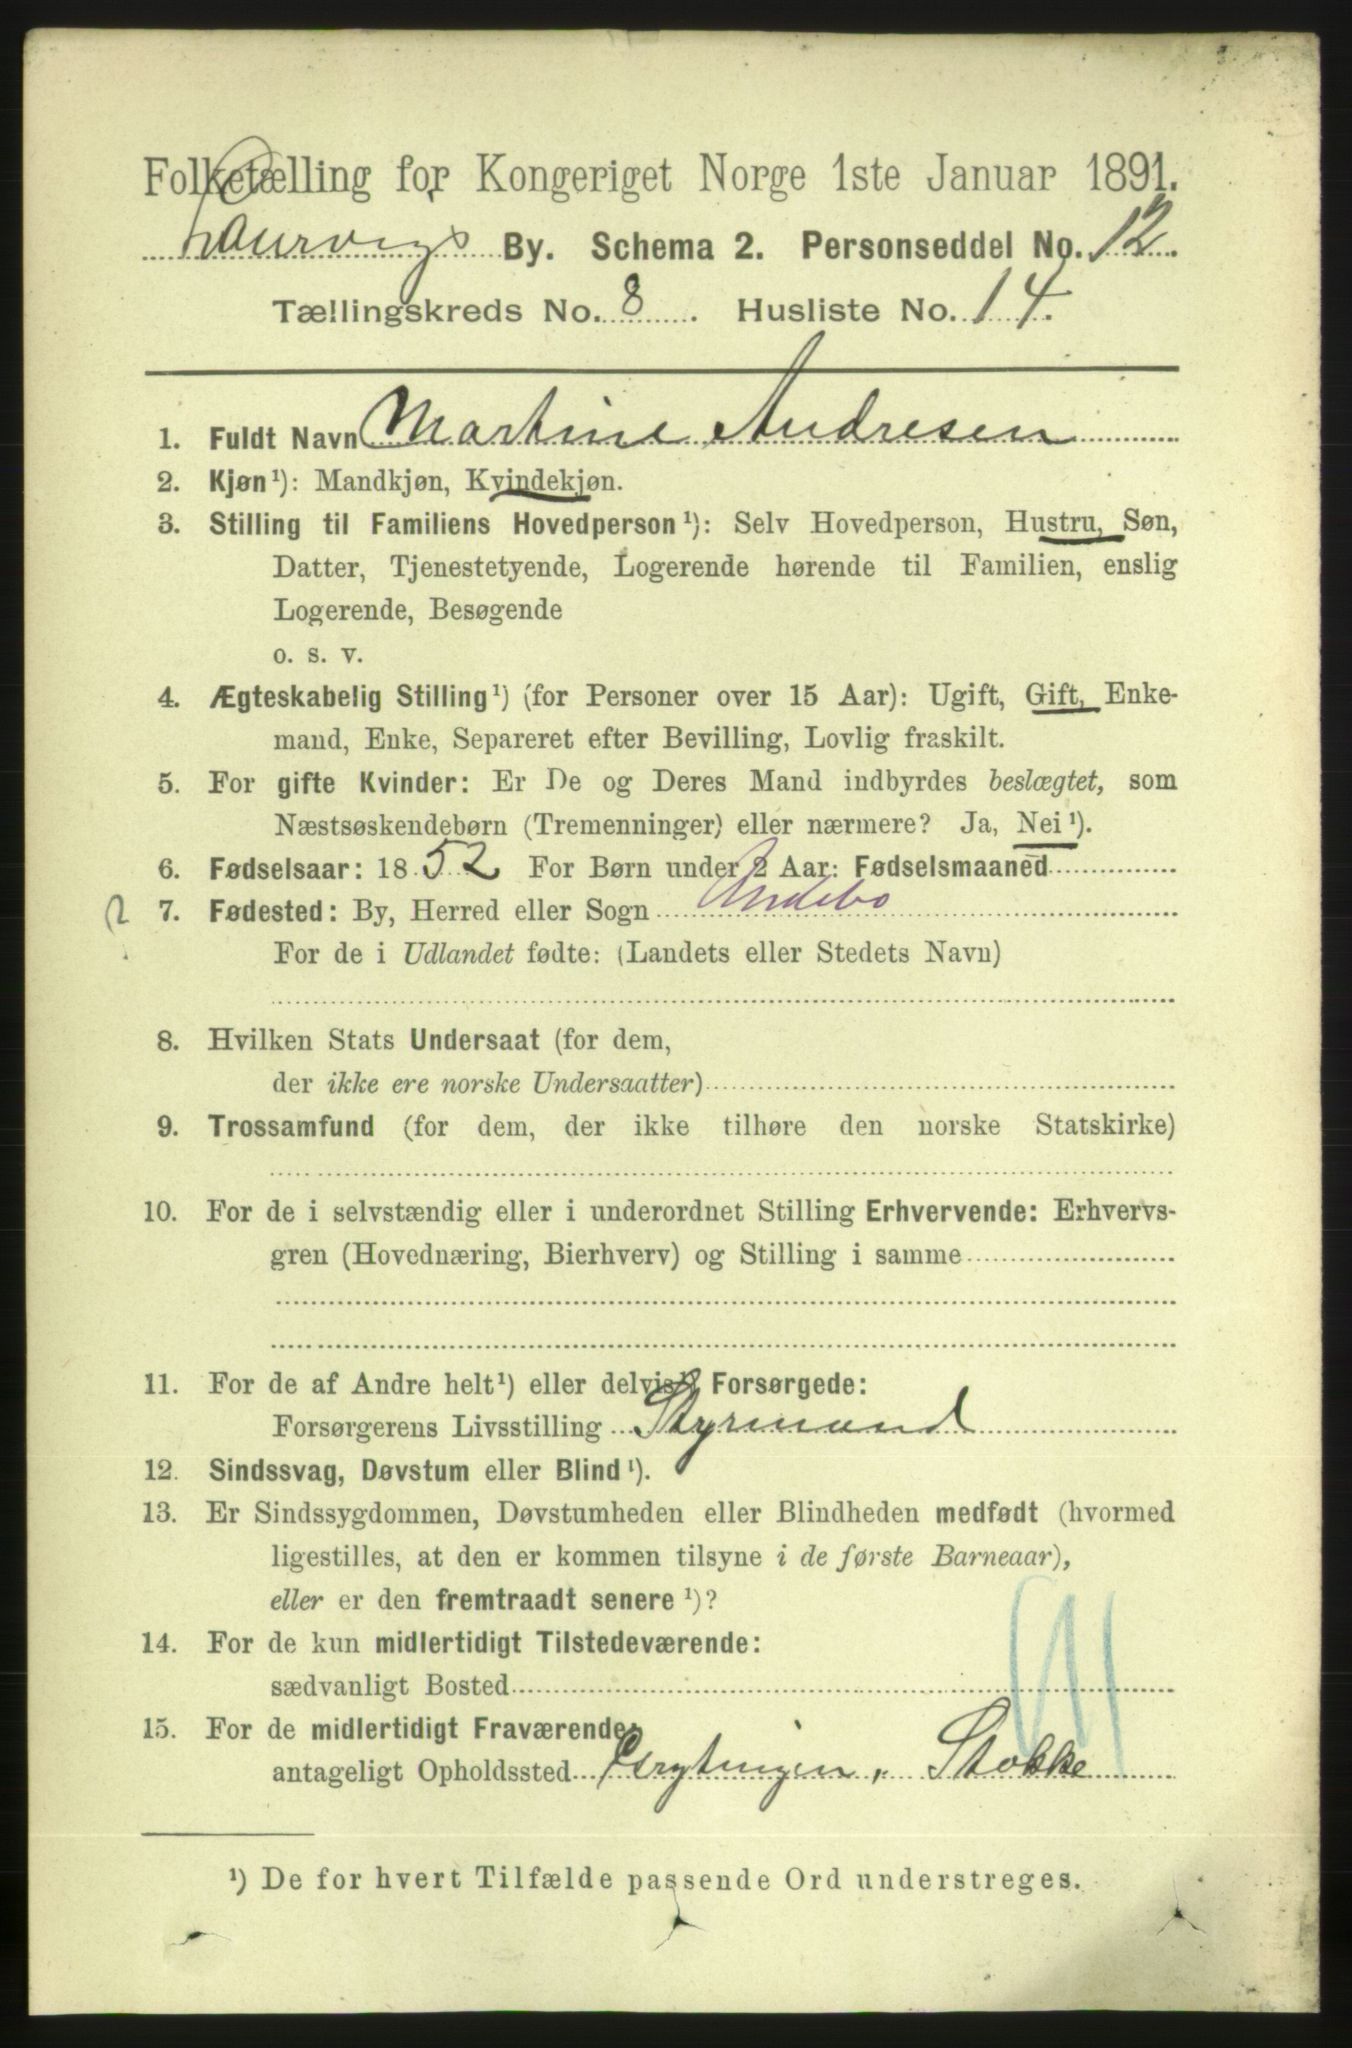 Folketælling for Kongeriget Norge 1ste Januar 1891.
Laurvigs By. Schema 2. Personseddel No. 12.
Tællingskreds No. 8. Husliste No. 14.
1. Fuldt Navn Martine Andresen
2. Kjøn¹): Mandkjøn, Kvindekjøn.
3. Stilling til Familiens Hovedperson¹): Selv Hovedperson, Hustru, Søn,
Datter, Tjenestetyende, Logerende hørende til Familien, enslig
Logerende, Besøgende
o. s. v.
4. Ægteskabelig Stilling¹) (for Personer over 15 Aar): Ugift, Gift, Enke-
mand, Enke, Separeret efter Bevilling, Lovlig fraskilt.
5. For gifte Kvinder: Er De og Deres Mand indbyrdes beslægtet, som
Næstsøskendebørn (Tremenninger) eller nærmere? Ja, Nei¹).
6. Fødselsaar: 1852 For Børn under 2 Aar: Fødselsmaaned
7. Fødested: By, Herred eller Sogn Andebo
For de i Udlandet fødte: (Landets eller Stedets Navn)
8. Hvilken Stats Undersaat (for dem,
der ikke ere norske Undersaatter)
9. Trossamfund (for dem, der ikke tilhøre den norske Statskirke)
10. For de i selvstændig eller i underordnet Stilling Erhvervende: Erhvervs-
gren (Hovednæring, Bierhverv) og Stilling i samme
11. For de af Andre helt¹) eller delvis¹) Forsørgede:
Forsørgerens Livsstilling Styrmand
12. Sindssvag, Døvstum eller Blind¹).
13. Er Sindssygdommen, Døvstumheden eller Blindheden medfødt (hvormed
ligestilles, at den er kommen tilsyne i de første Barneaar),
eller er den fremtraadt senere¹)?
14. For de kun midlertidigt Tilstedeværende:
sædvanligt Bosted
15. For de midlertidigt Fraværende:
antageligt Opholdssted Stokke
¹) De for hvert Tilfælde passende Ord understreges.